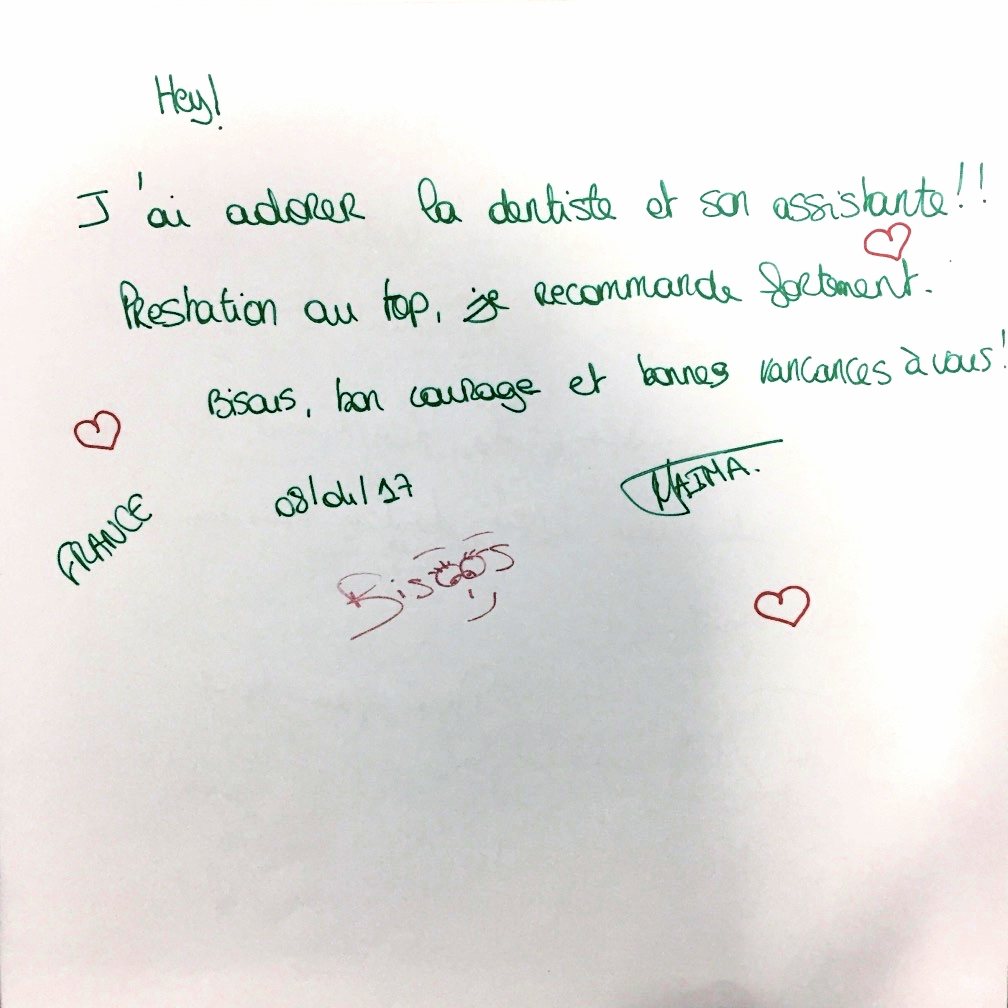 Hey!
J'ai adorer la dentiste et son assistante!!
Prestation au top, je recommande fortement.
Bisous, bon courage et bonnes vancances à vous!
FRANCE 08/04/17 NAIMA.
Bisoos